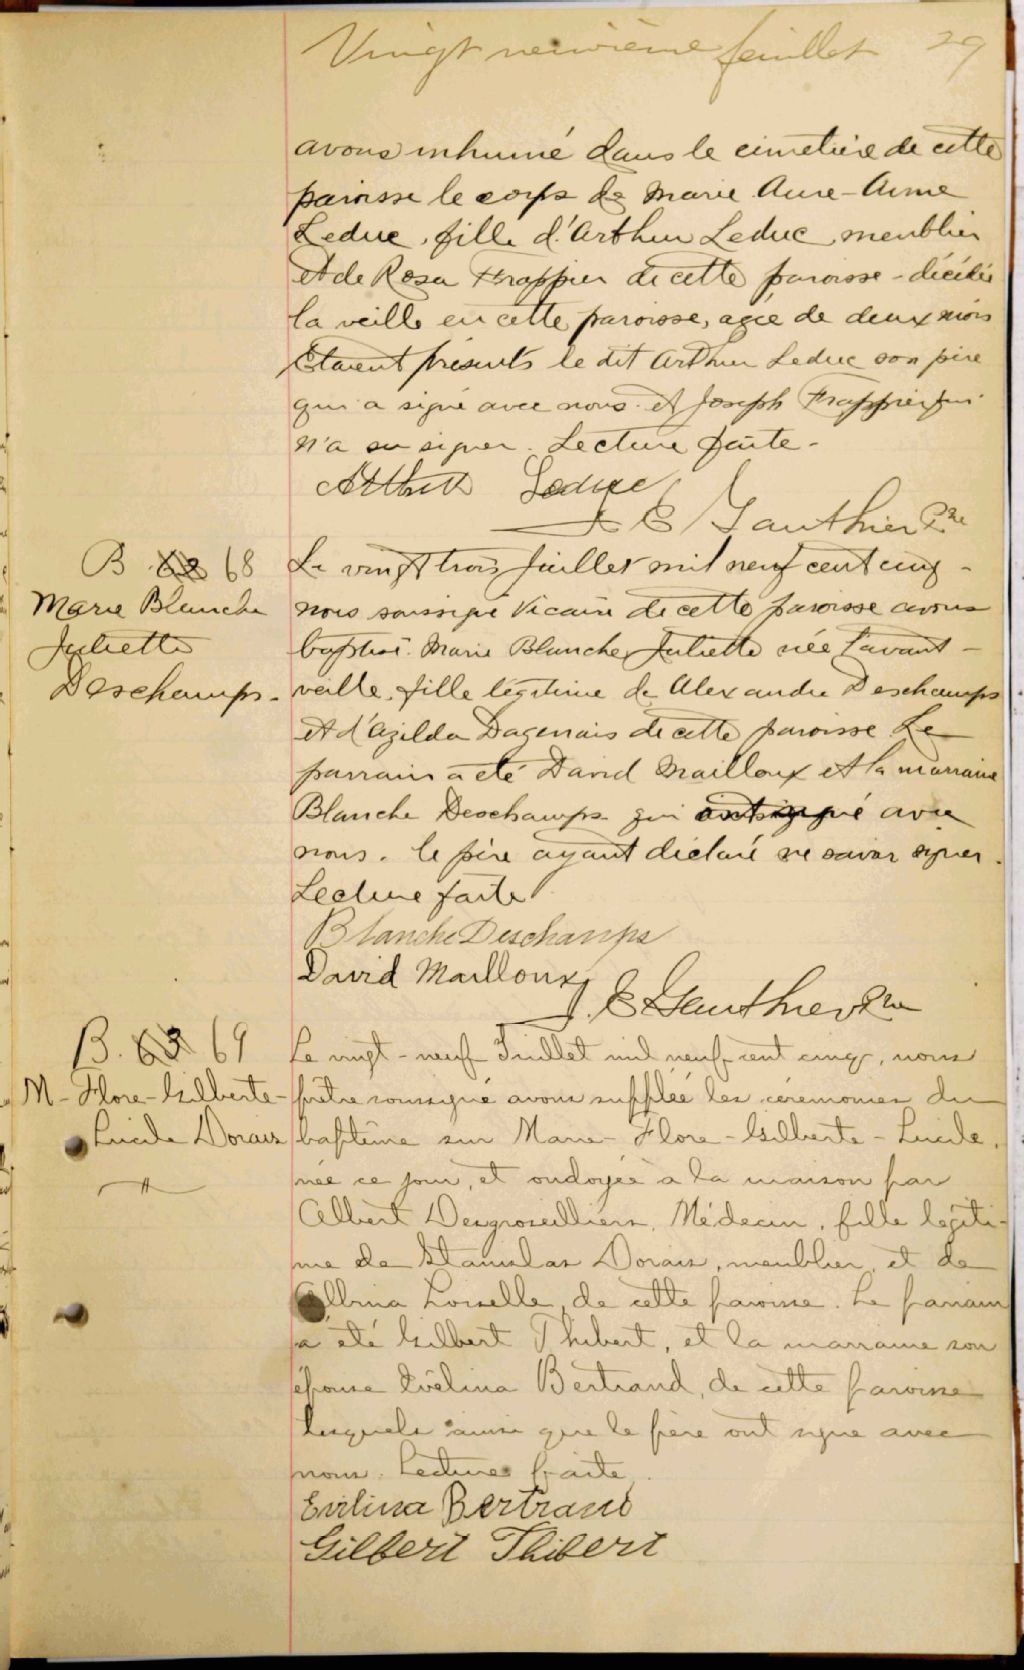 Vingt neuvième feuillet 29
avons inhumé dans le cimetière de cette
paroisse le corps de Marie Aure-Aime
Leduc, fille d'Arthur Leduc, meublier
et de Rosa Frappier de cette paroisse - décédée
la veille en cette paroisse, agée de deux mois
Etaient présents le dit Arthur Leduc son père
qui a signé avec nous et Joseph Frappier qui
n'a su signer. Lecture faite.
Arthur Leduc
J E Gauthier Ptre
B. 68
Marie Blanche
Juliette
Deschamps.
Le vingt trois Juillet mil neuf cent cinq -
nous soussigné Vicaire de cette paroisse avons
baptisé Marie Blanche Juliette née l'avant -
veille, fille légitime de Alexandre Deschamps
et d'Azilda Dagenais de cette paroisse Le
parrain a été David Mailloux et la marraine
Blanche Deschamps qui ont signé avec
nous. le père ayant déclaré ne savoir signer.
Lecture faite
Blanche Deschamps
David Mailloux
J. E Gauthier Ptre
B. 69
M - Flore - Gilberte -
Lucile Dorais
Le vingt-neuf Juillet mil neuf cent cinq, nous
prêtre soussigné avons suppléé les cérémonies du
baptême sur Marie - Flore - Gilberte - Lucile,
née ce jour, et ondoyée à la maison par
Albert Desgroseilliers, Médecin, fille légiti-
me de Stanislas Dorais, meublier, et de
Albina Loiselle, de cette paroisse. Le parrain
a été Gilbert Thibert, et la marraine son
épouse Evélina Bertrand, de cette paroisse
lesquels ainsi que le père ont signé avec
nous. Lecture faite.
Evelina Bertrand
Gilbert Thibert